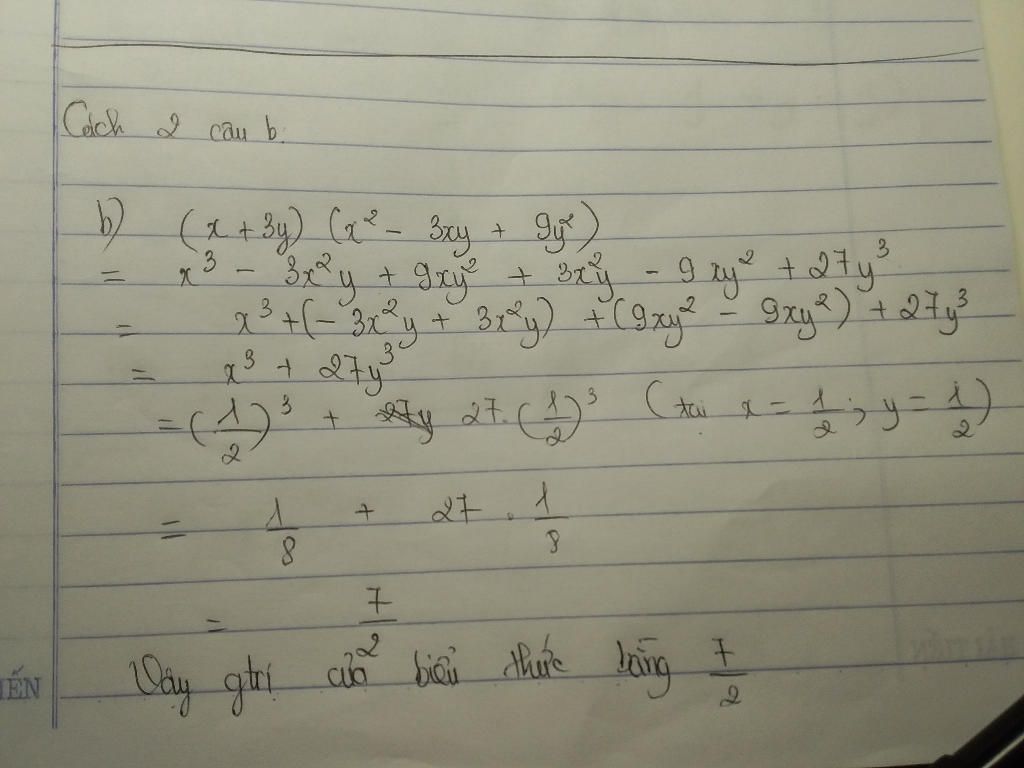 Cách 2 câu b.
b) (x + 3y) (x² - 3xy + 9y²)
= x³ - 3x²y + 9xy² + 3x²y - 9xy² + 27y³
= x³ + (-3x²y + 3x²y) + (9xy² - 9xy²) + 27y³
= x³ + 27y³
= (1/2)³ + 27. (1/2)³ (tại x = 1/2; y = 1/2)
= 1/8 + 27 . 1/8
= 7/2
Vậy gtrị của biểu thức bằng 7/2
IẾN